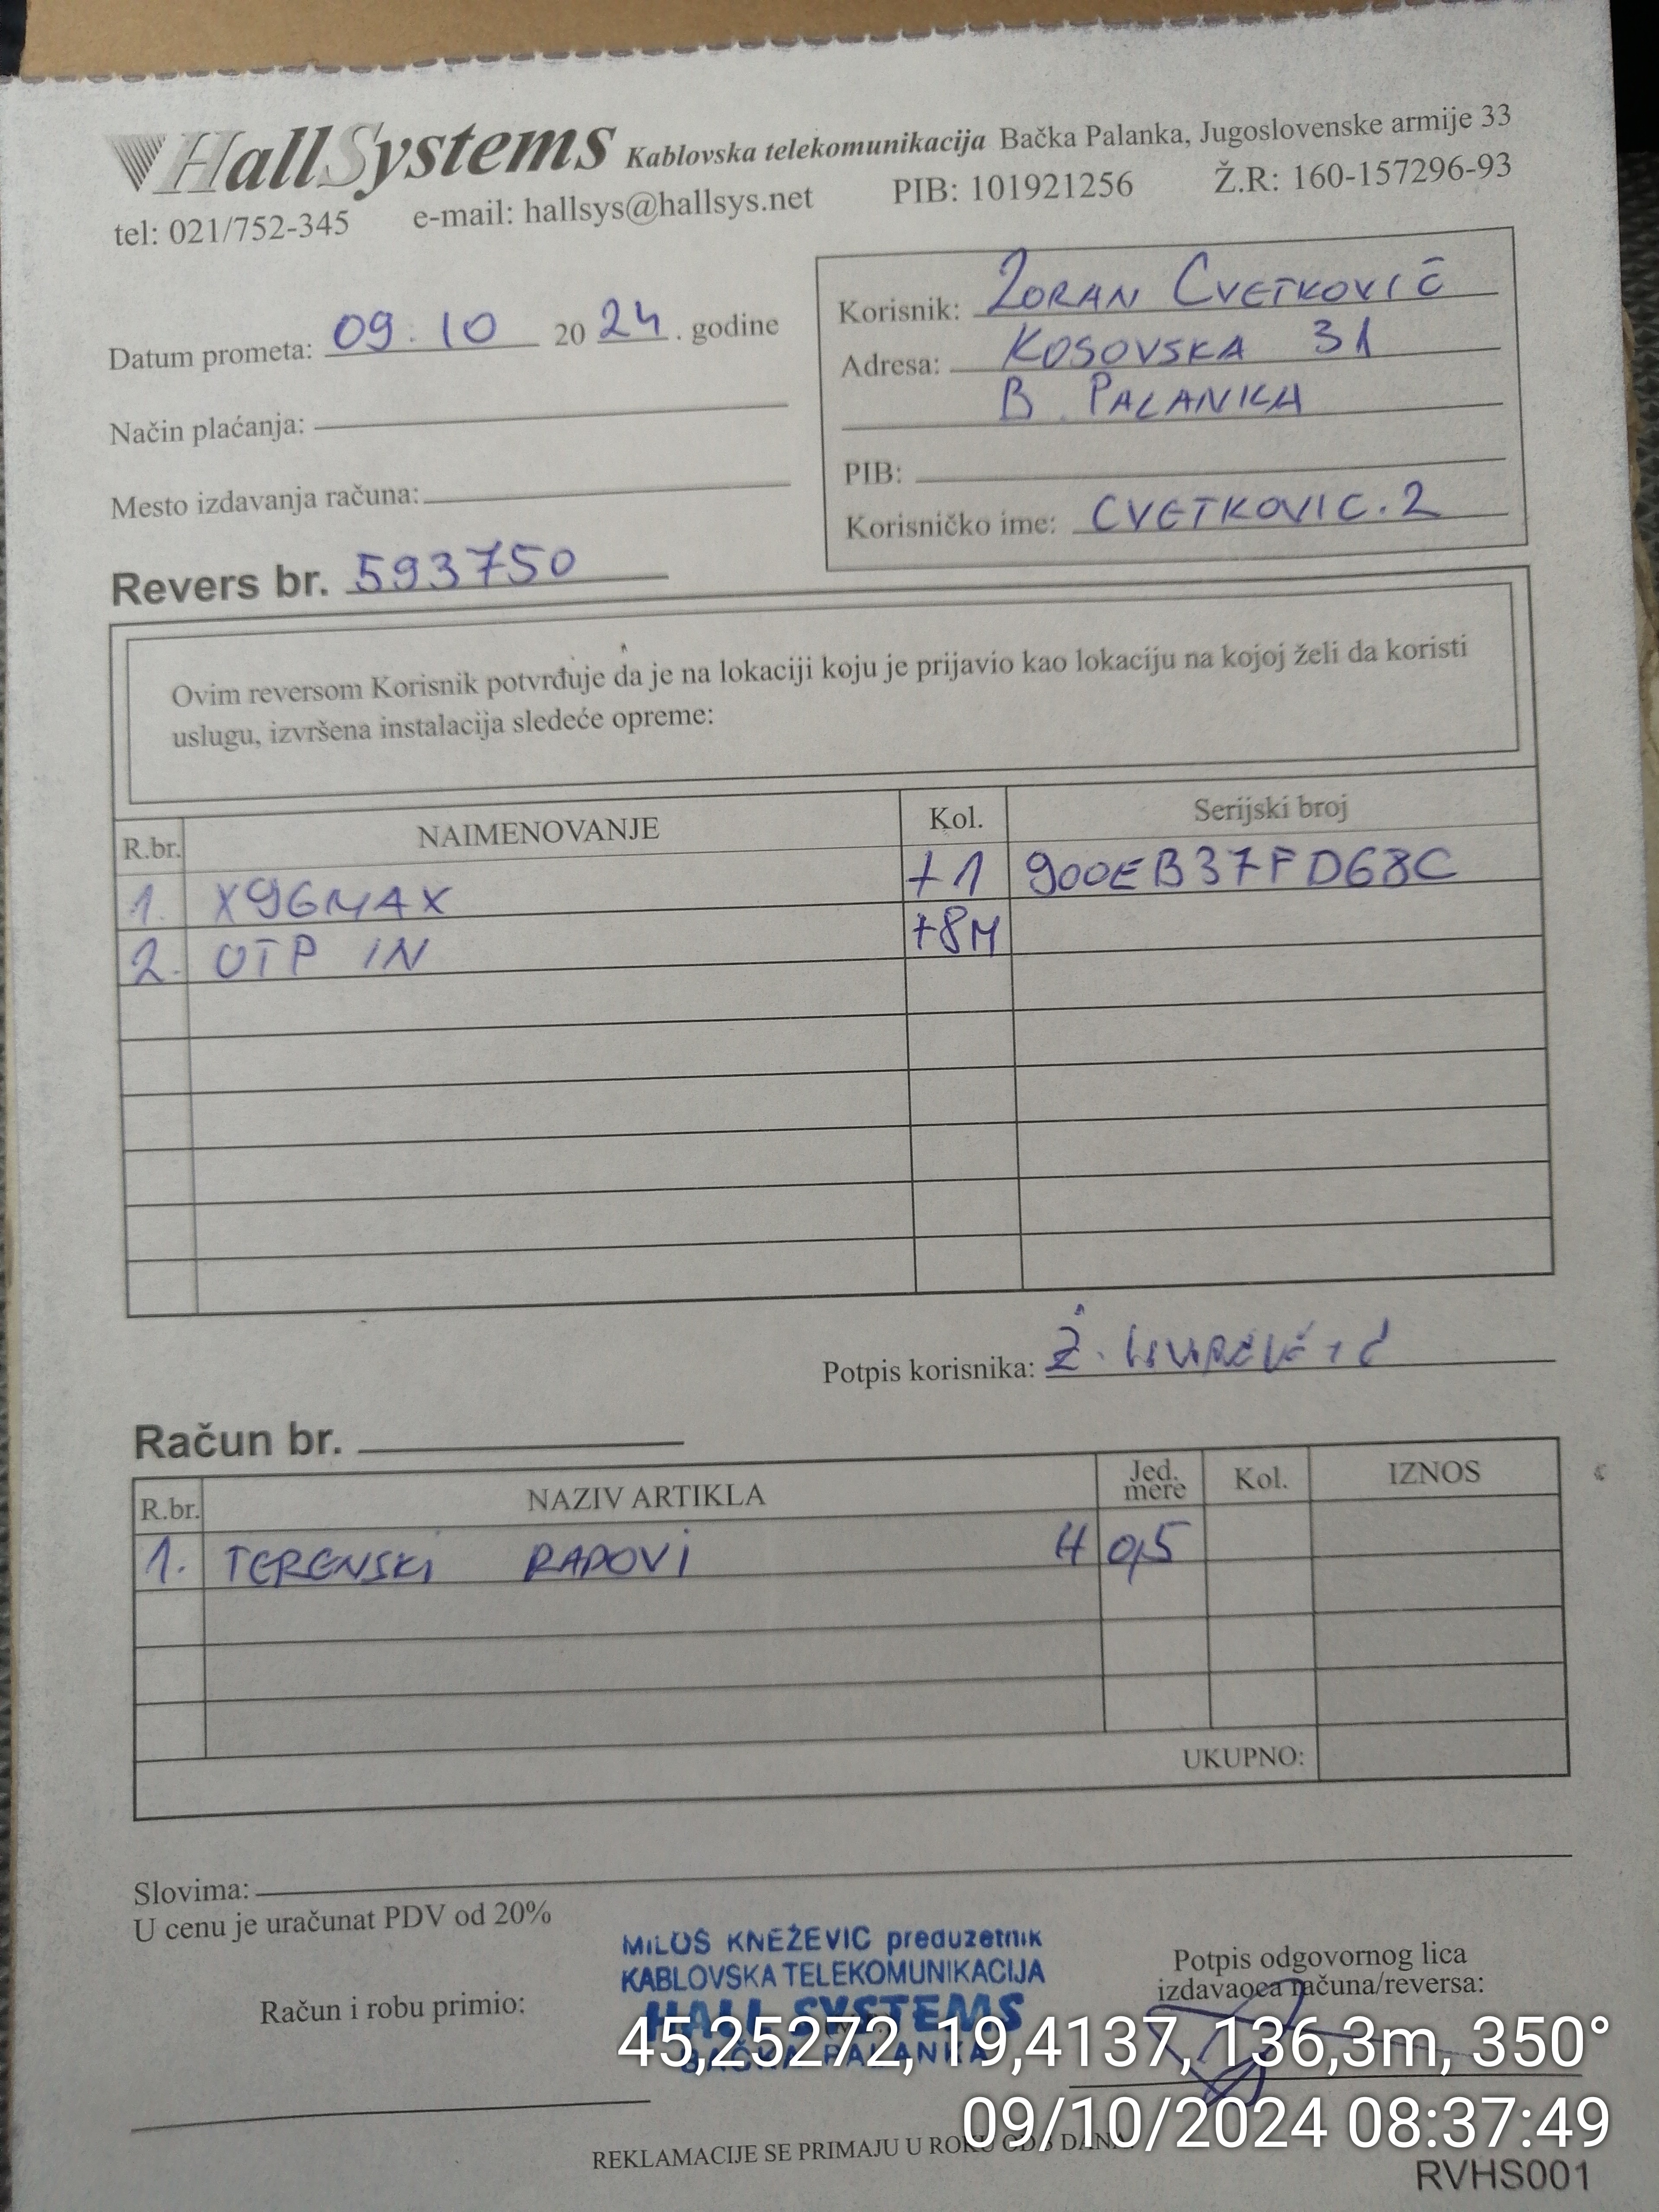 HallSystems Kablovska telekomunikacija Bačka Palanka, Jugoslovenske armije 33
tel: 021/752-345 e-mail: hallsys@hallsys.net PIB: 101921256 Ž.R: 160-157296-93
Datum prometa: 09.10 2024. godine
Način plaćanja:
Mesto izdavanja računa:
Korisnik: ZORAN CVETKOVIĆ
Adresa: KOSOVSKA 31
B. PALANKA
PIB:
Korisničko ime: CVETKOVIC.2
Revers br. 593750
Ovim reversom Korisnik potvrđuje da je na lokaciji koju je prijavio kao lokaciju na kojoj želi da koristi
uslugu, izvršena instalacija sledeće opreme:
R.br. NAIMENOVANJE Kol. Serijski broj
1. X96MAX +1 900EB37FD68C
2. UTP IN +8M
Potpis korisnika:
Račun br.
R.br. NAZIV ARTIKLA Jed. mere Kol. IZNOS
1. TERENSKI RADOVI H 0,5
UKUPNO:
Slovima:
U cenu je uračunat PDV od 20%
Račun i robu primio:
MILOŠ KNEŽEVIĆ preduzetnik
KABLOVSKA TELEKOMUNIKACIJA
HALL SYSTEMS
BAČKA PALANKA
Potpis odgovornog lica
izdavaoca računa/reversa:
45,25272, 19,4137, 136,3m, 350°
09/10/2024 08:37:49
REKLAMACIJE SE PRIMAJU U ROKU OD DANA
RVHS001